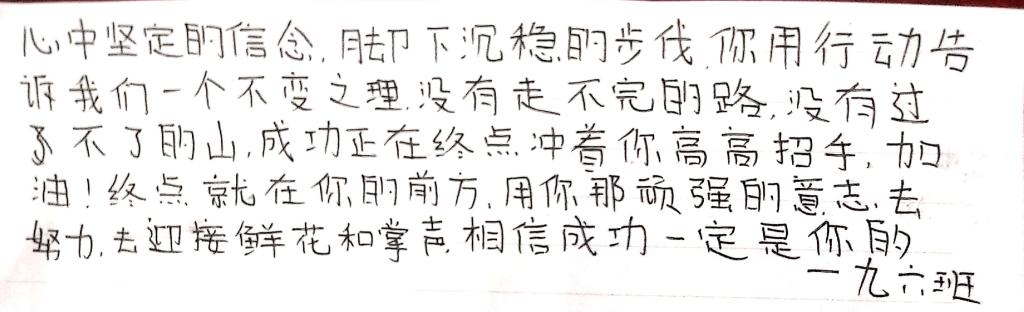 心中坚定的信念,脚下沉稳的步伐,你用行动告
诉我们一个不变之理,没有走不完的路,没有过
不了的山,成功正在终点冲着你高高招手,加
油!终点就在你的前方,用你那顽强的意志,去
努力,去迎接鲜花和掌声,相信成功一定是你的
一九六班